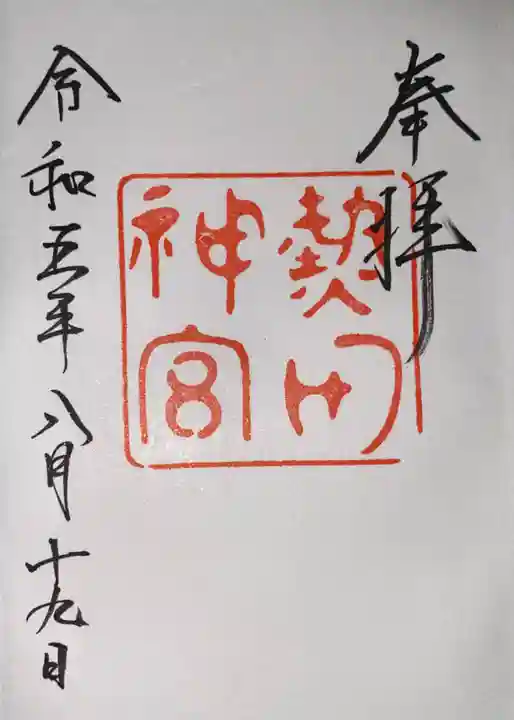 奉拝
熱田
神宮
令和五年八月十九日